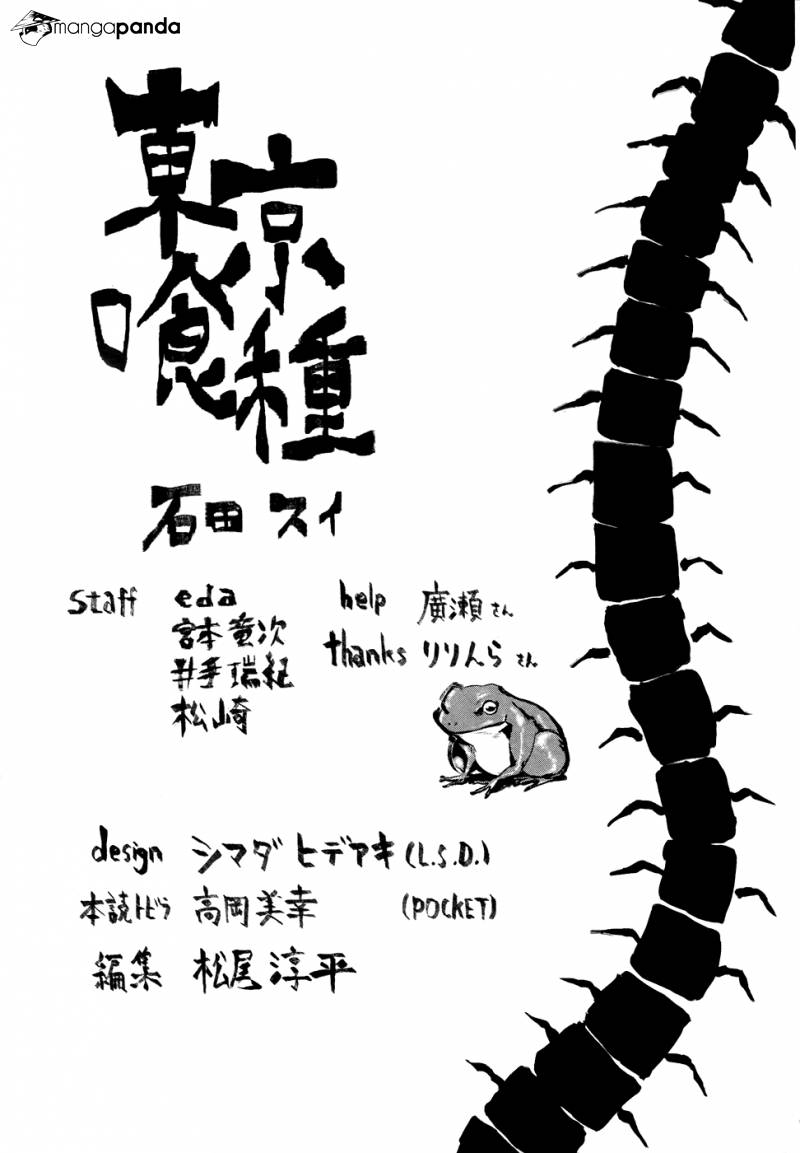 mangapanda
東京
喰種
石田 スイ
staff eda help 廣瀬さん
宮本竜次 thanks りりんらさん
井手瑞紀
松崎
design シマダヒデアキ (L.S.D.)
本読トビラ 高岡美幸 (POCKET)
編集 松尾淳平